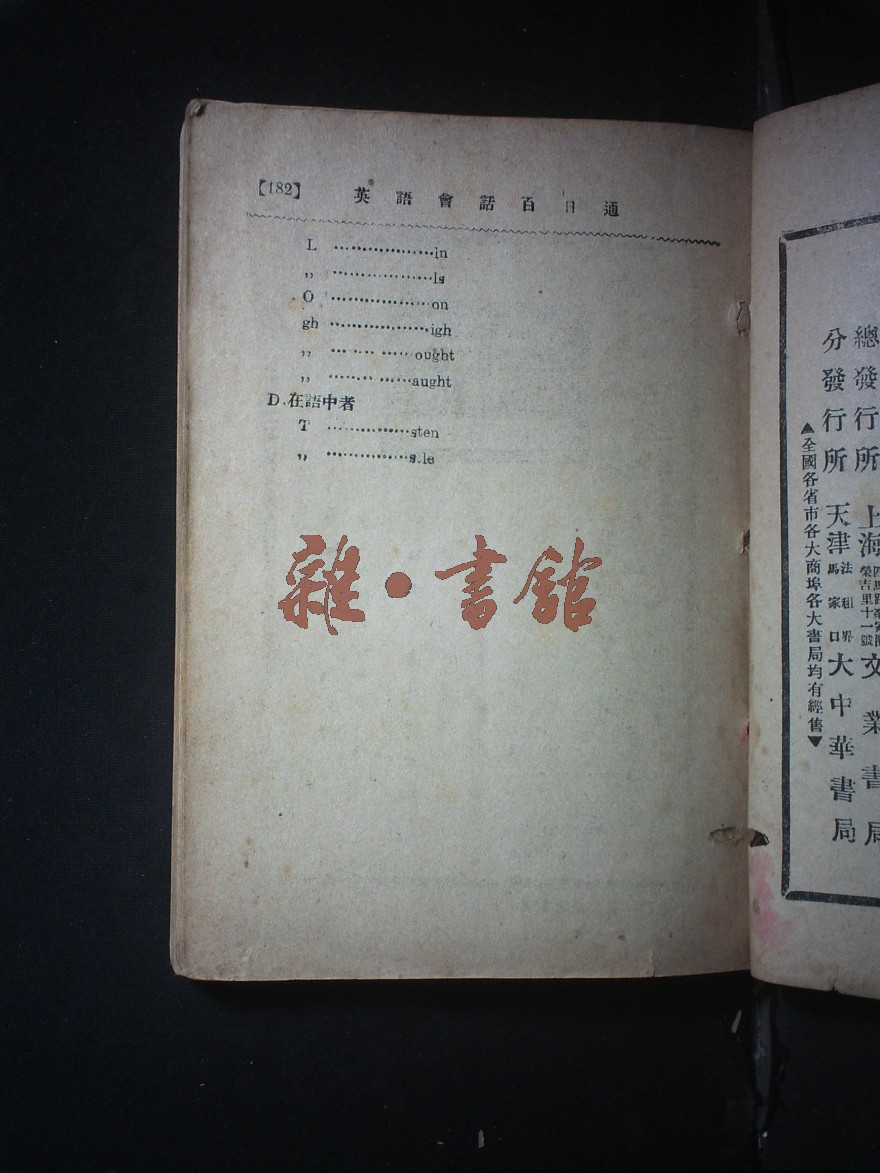 【182】 英語會話百日通
L ··················in
,, ··················ls
O ··················on
gh ··················igh
,, ··················ought
,, ··················aught
D.在語中者
T ···············sten
,, ···············s.le
雜·書館
總發行所 上海 榮吉里十一號 文業書局
分發行所 天津 法租界 馬家口 大中華書局
▲全國各省市各大商埠各大書局均有經售▼